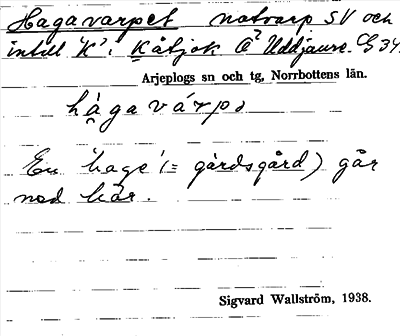 Hagavarpet notvarp SV och
intill 'K' i Kåtjok Ö? Uddjaure. G 34.
Arjeplogs sn och tg, Norrbottens län.
hàgavárpə
En 'hage' (= gårdsgård) går
ned här.
Sigvard Wallström, 1938.